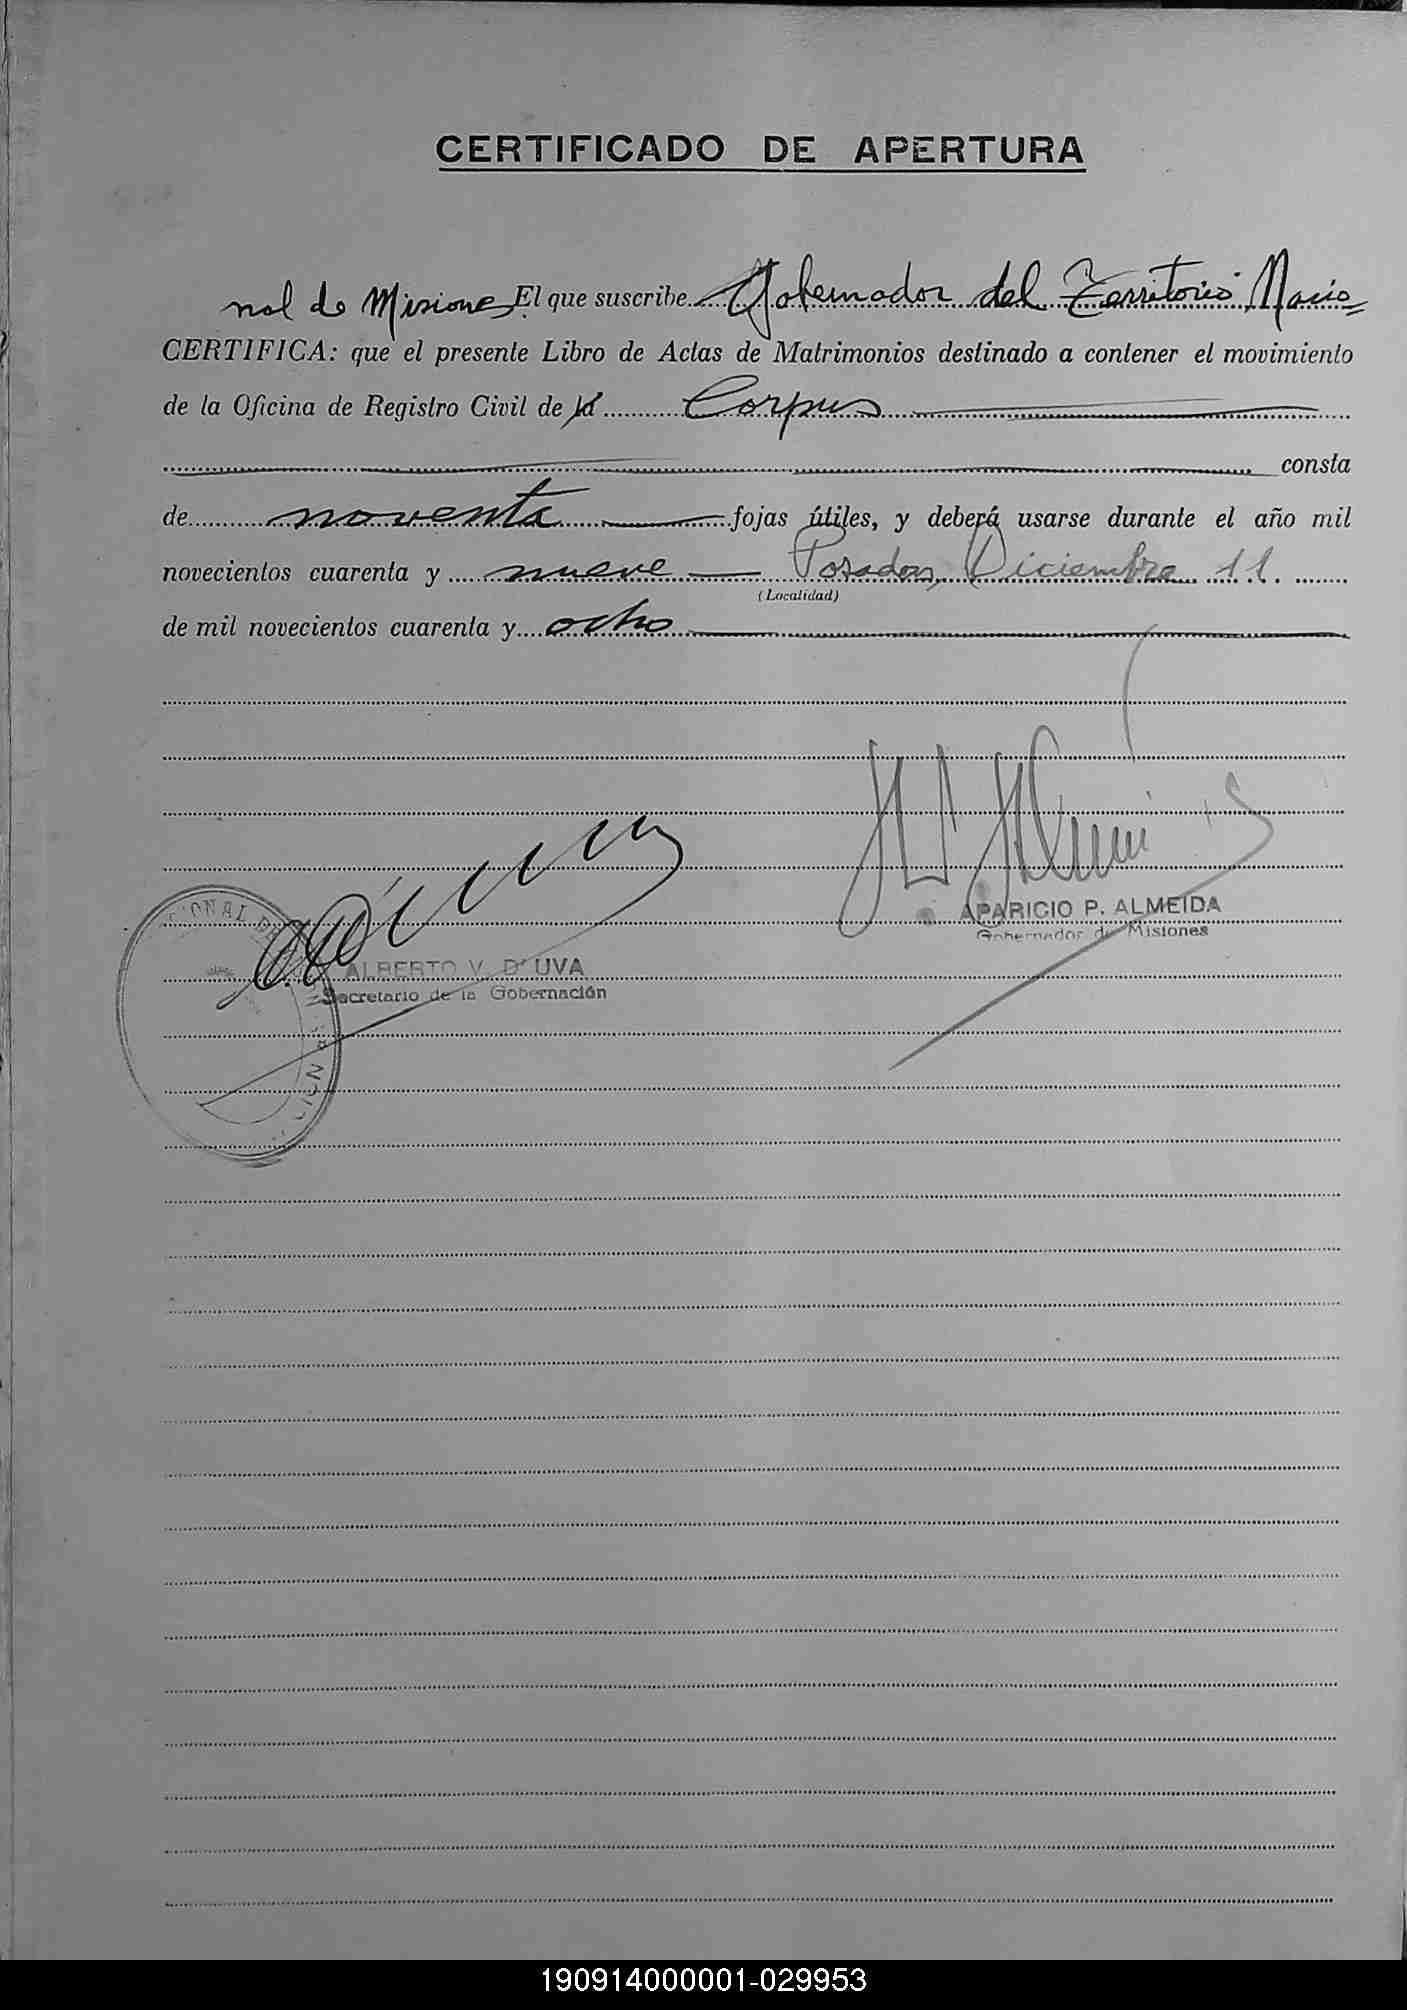 CERTIFICADO DE APERTURA
nal de Misiones El que suscribe Gobernador del Territorio Nacio=
CERTIFICA: que el presente Libro de Actas de Matrimonios destinado a contener el movimiento
de la Oficina de Registro Civil de la Corpus
consta
de noventa fojas útiles, y deberá usarse durante el año mil
novecientos cuarenta y nueve Posadas, Diciembre 11.
(Localidad)
de mil novecientos cuarenta y ocho
APARICIO P. ALMEIDA
Gobernador de Misiones
ALBERTO V. D'UVA
Secretario de la Gobernación
190914000001-029953